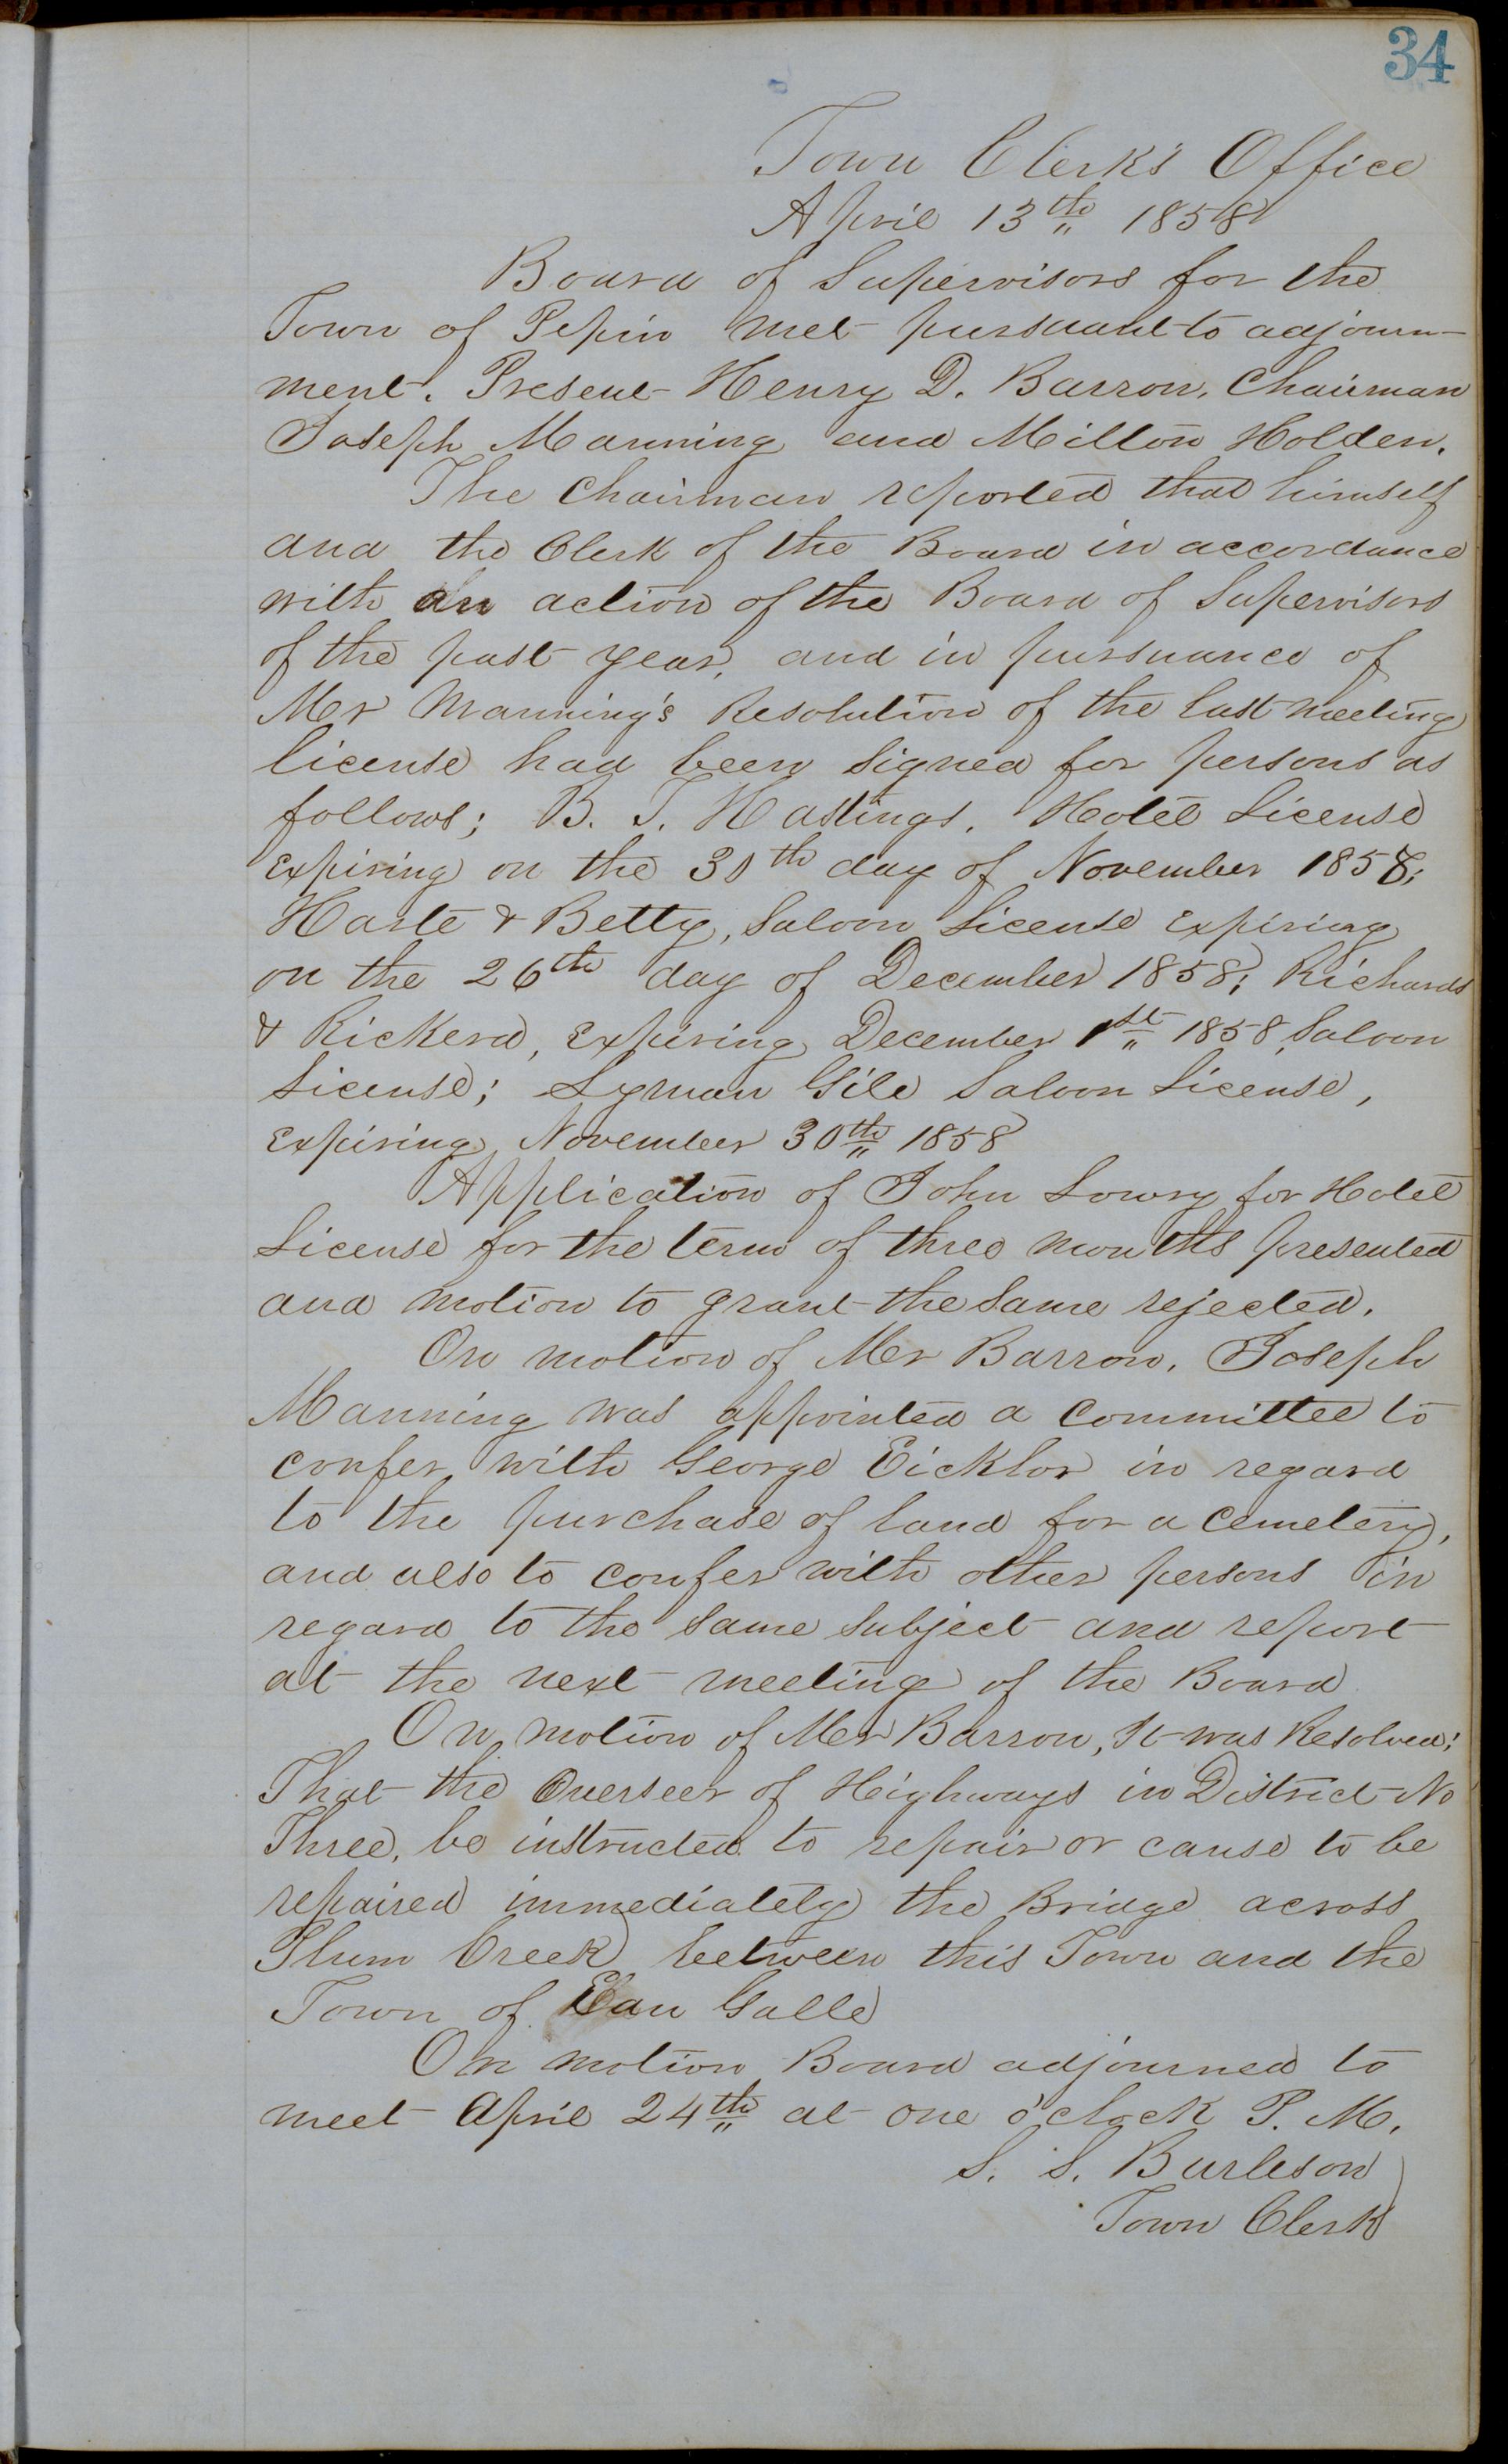 34
Town Clerk's Office
April 13th 1858
Board of Supervisors for the
Town of Pepin met pursuant to adjourn-
ment. Present Henry D. Barron, Chairman
Joseph Manning and Milton Holden.
The Chairman reported that himself
and the Clerk of the Board in accordance
with an action of the Board of Supervisors
of the past year, and in pursuance of
Mr Manning's Resolution of the last meeting
license had been signed for persons as
follows; B. T. Hastings, Hotel License
expiring on the 30th day of November 1858;
Harte & Betty, Saloon License expiring
on the 26th day of December 1858; Richards
& Rickerd, expiring December 1st 1858, Saloon
License; Lyman Gile Saloon License,
expiring November 30th 1858
Application of John Lowry for Hotel
License for the term of three months presented
and motion to grant the same rejected.
On motion of Mr Barron, Joseph
Manning was appointed a committee to
confer with George Eicklor in regard
to the purchase of land for a cemetery,
and also to confer with other persons in
regard to the same subject and report
at the next meeting of the Board
On motion of Mr Barron, It was Resolved;
That the Overseer of Highways in District No
Three, be instructed to repair or cause to be
repaired immediately the Bridge across
Plum Creek between this Town and the
Town of Eau Galle
On motion Board adjourned to
meet April 24th at one o'clock P. M.
S. S. Burleson
Town Clerk